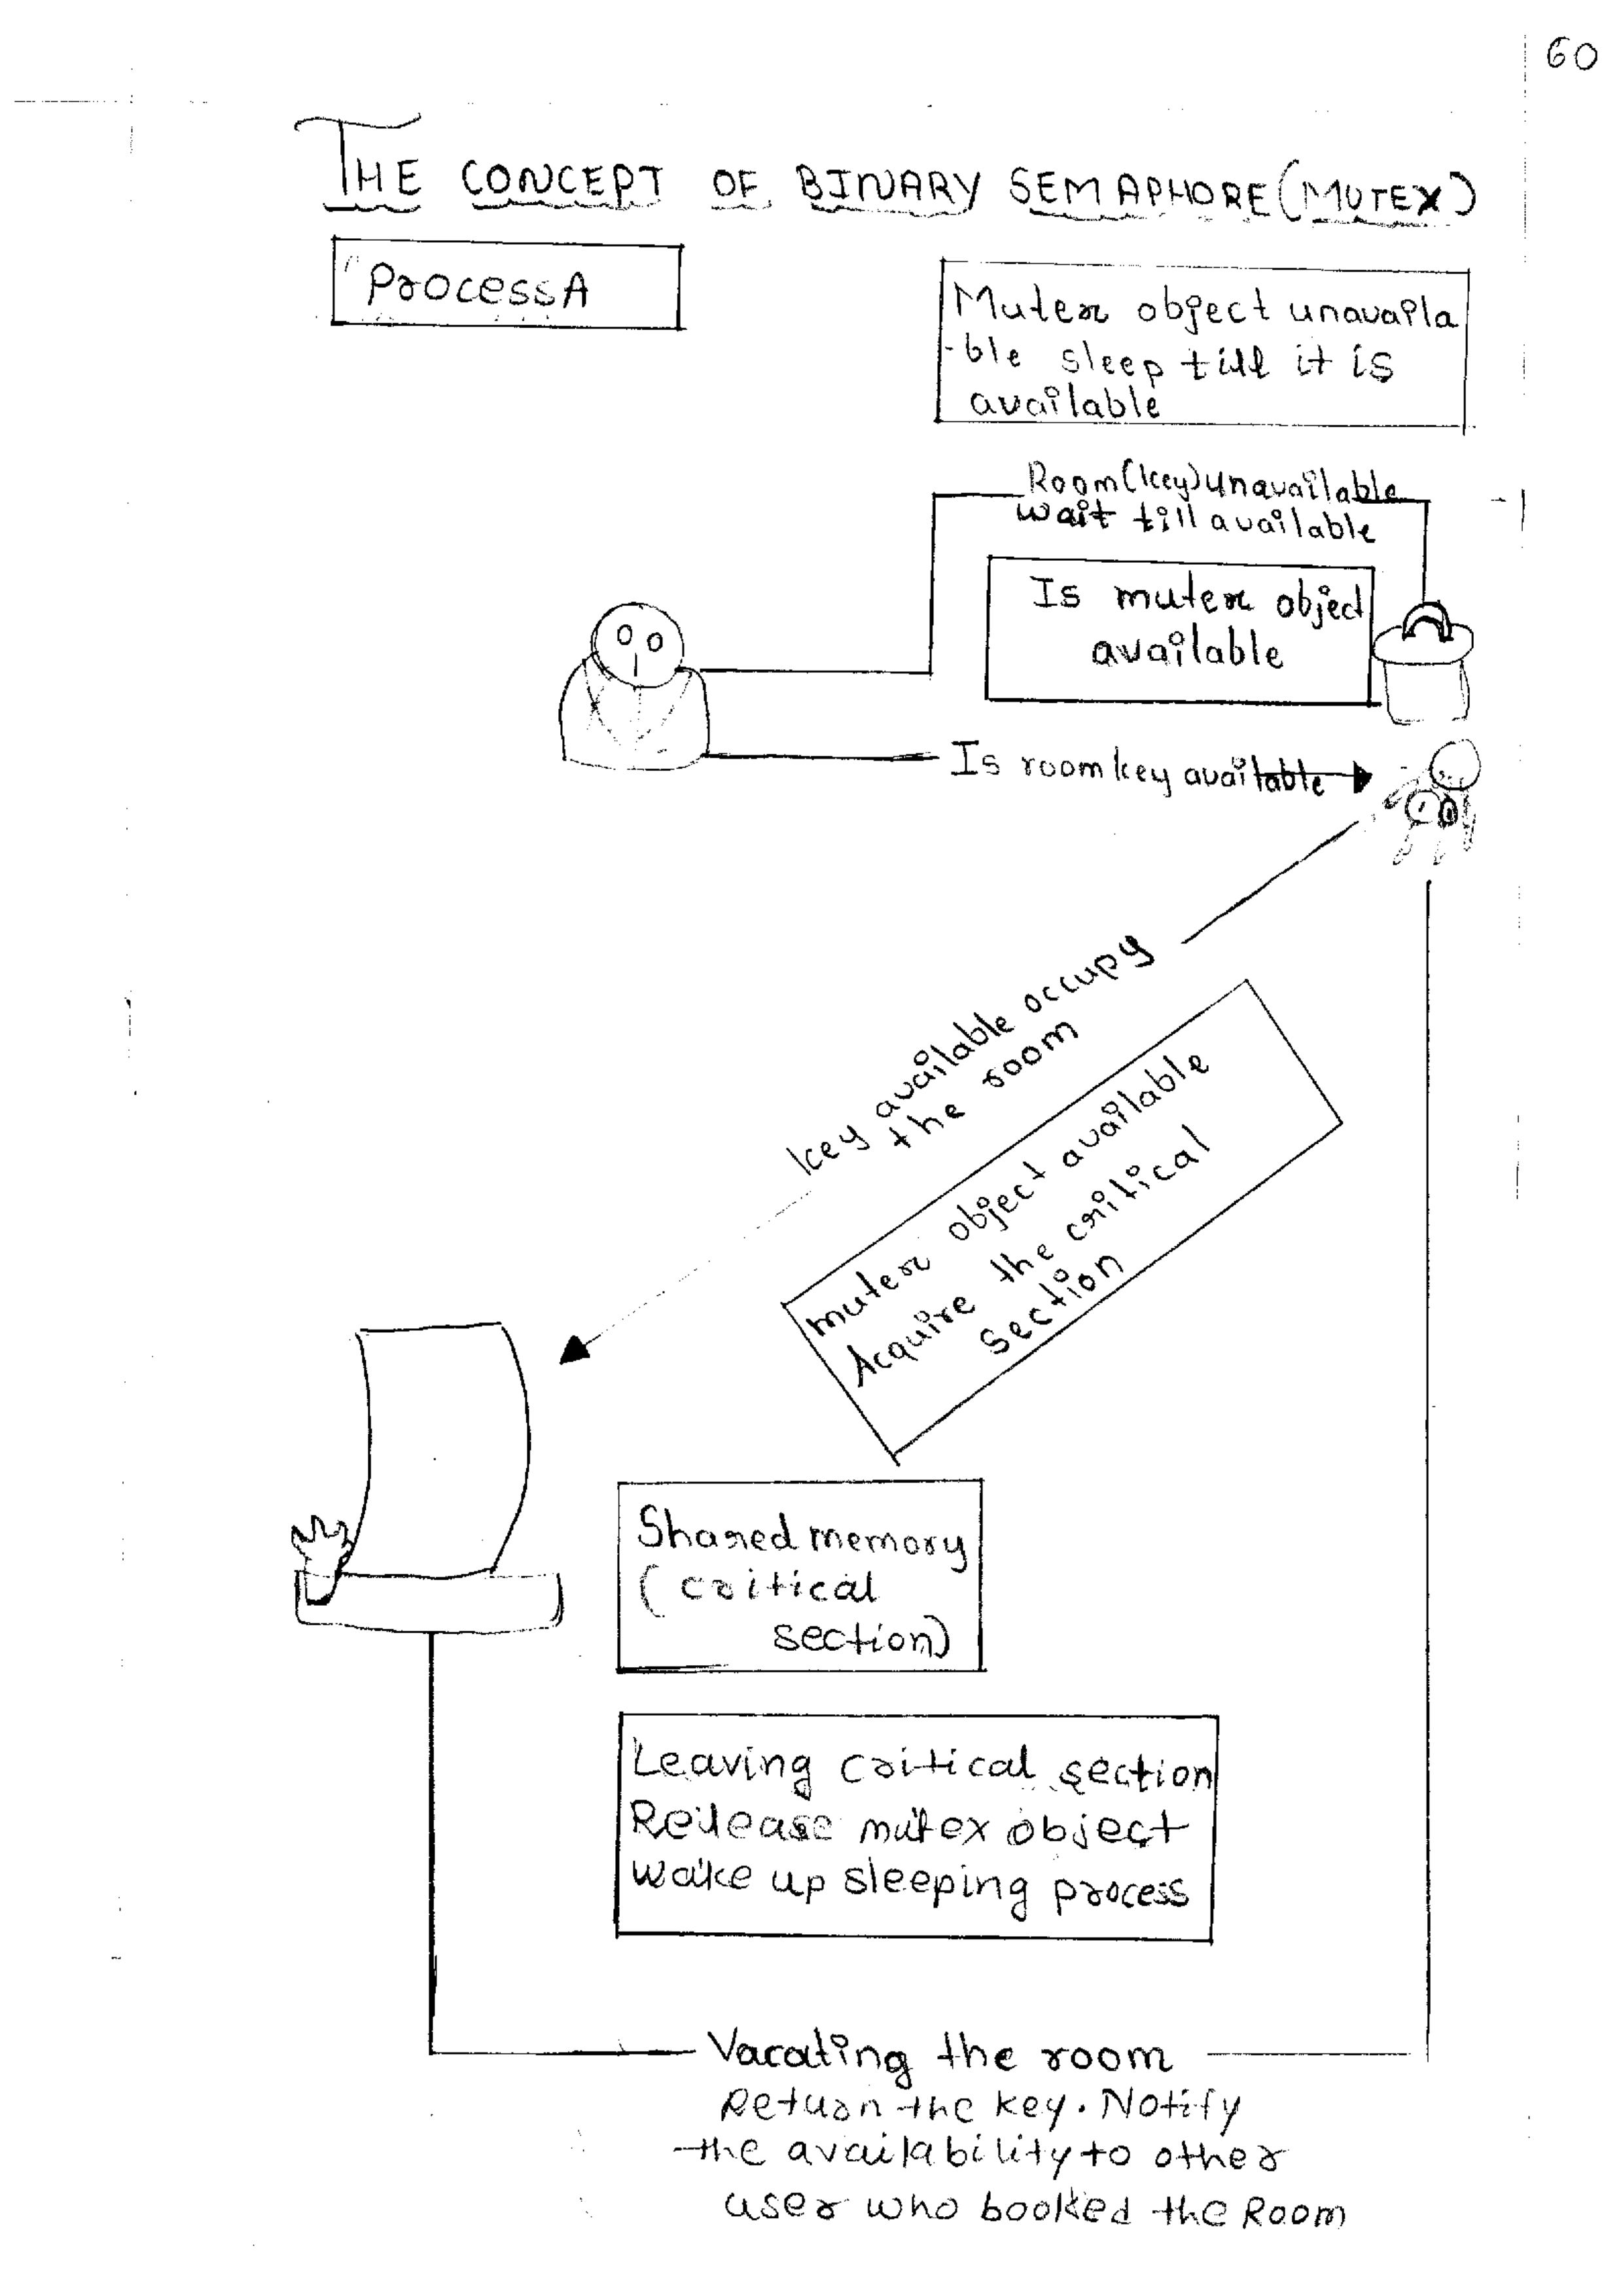 60
THE CONCEPT OF BINARY SEMAPHORE (MUTEX)
Process A
Mutex object unavaila
-ble sleep till it is
available
Room (key) unavailable
wait till available
Is mutex object
available
Is room key available
key available occupy
the room
mutex object available
Acquire the critical
section
Shared memory
(critical
section)
Leaving critical section
Release mutex object
wake up sleeping process
Vacating the room
Return the key. Notify
the availability to other
user who booked the Room